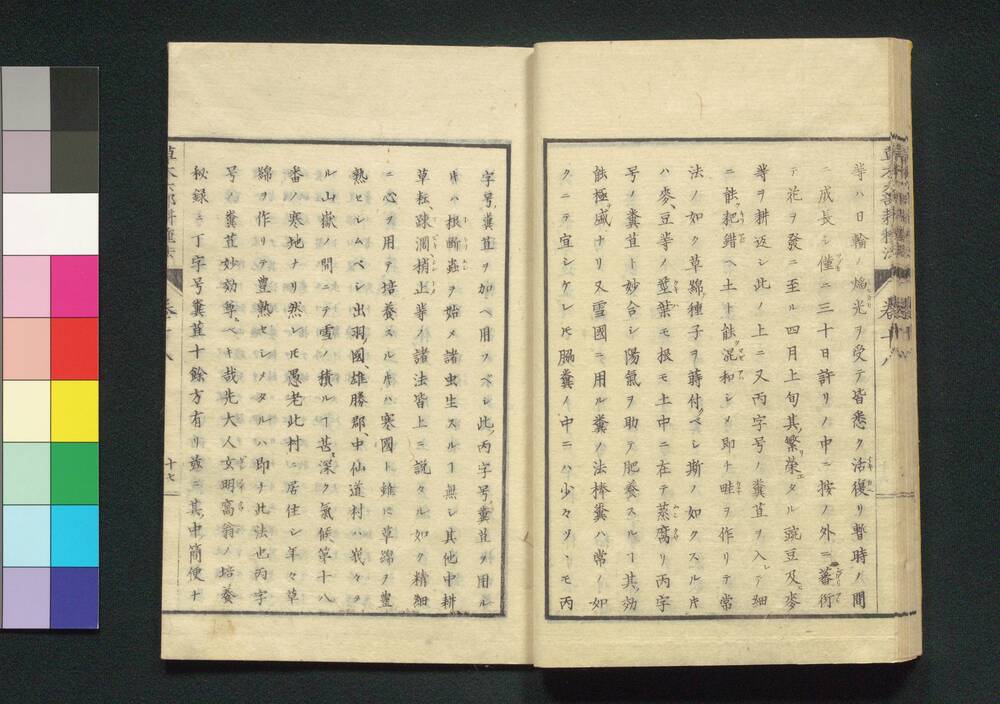 等ハ日輪ノ焔光ヲ受テ皆悉ク活復リ暫時ノ間
ニ成長シ僅ニ三十日許リノ中ニ按ノ外ニ蕃衍
テ花ヲ發ニ至ル四月上旬其繁榮タル豌豆及麥
等ヲ耕返シ此ノ上ニ又丙字号ノ糞苴ヲ入レテ細
ニ能耙錯ヘ土ト能混和シメ即チ畦ヲ作リテ常
法ノ如ク草綿種子ヲ蒔付ベシ斯ノ如クスル片
ハ麥、豆等ノ莖葉モ根モ土中ニ在テ蒸腐リ丙字
号ノ糞苴ト妙合シ陽氣ヲ助テ肥養スルヿ其効
能極盛ナリ又雪國ニ用ル糞ノ法棒糞ハ常ノ如
クニテ宜シケレ𪜈膃糞ノ中ニハ少々ヅヽモ丙
字号糞苴ヲ加ヘ用フベシ此丙字号糞苴ヲ用ル
片ハ根断蟲ヲ始メ諸虫生スルヿ無シ其他中耕
草耘疎澗捎止等ノ諸法皆上ニ説タル如ク精細
ニ心ヲ用テ培養スル片ハ寒國ト雖ニ草綿ヲ豊
熟セシムベシ出羽國、雄勝郡、中仙道村ハ峩々タ
ル山嶽ノ間ニテ雪ノ積ルヿ甚深ク氣候第十八
番ノ寒地ナリ然レ𪜈愚老此村ニ居住シ年々草
綿ヲ作リテ豊熟セシメタルハ即チ此法也丙字
号ノ糞苴妙効尊ベキ哉先大人女明窩翁ノ培養
秘録ニ丁字号糞苴十餘方有リ茲ニ其中簡便ナ
十七